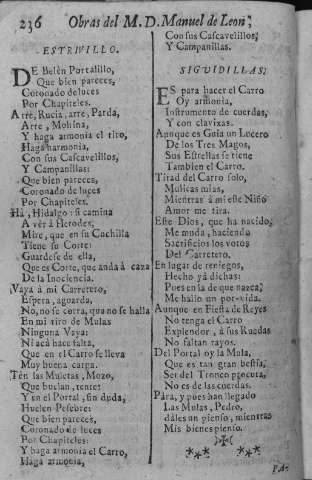 236 Obras del M. D. Manuel de Leon;
ESTRIVILLO.
DE Belèn Portalillo,
Que bien pareces,
Coronado de luces
Por Chapiteles.
Arre, Rucia, arre, Parda,
Arre, Mohina,
Y haga armonia el tiro,
Haga harmonia,
Con sus Cascavelillos,
Y Campanillas:
Que bien pareces,
Coronado de luces
Por Chapiteles.
Hà, Hidalgo: si camina
A vèr à Herodes,
Mire, que en su Cuchilla
Tiene su Corte:
Guardese de ella,
Que es Corte, que anda à caza
De la Inocencia.
Vaya à mi Carretero,
Espera, aguarda,
No, no se corra, que no se halla
En mi tiro de Mulas
Ninguna Vaya:
Ni acà hace falta,
Que en el Carro se lleva
Muy buena carga.
Tèn las Muletas, Mozo,
Que buelan, tente:
Y en el Portal, sin duda,
Huelen Pesebre:
Que bien pareces,
Coronado de luces
Por Chapiteles:
Y haga armonia el Carro,
Haga armonia,
Con sus Cascavelillos,
Y Campanillas.
SIGUIDILLAS.
ES para hacer el Carro
Oy armonia,
Instrumento de cuerdas,
Y con clavixas.
Aunque es Guia un Lucero
De los Tres Magos,
Sus Estrellas se tiene
Tambien el Carro.
Tirad del Carro solo,
Mulicas mias,
Mientras à mi este Niño
Amor me tira.
Este Dios, que ha nacido,
Me muda, haciendo
Sacrificios los votos
Del Carretero.
En lugar de reniegos,
Hecho yà dichas:
Pues en la de que nazca,
Me hallo un por-vida.
Aunque en Fiesta de Reyes
No tenga el Carro
Explendor, à sus Ruedas
No faltan rayos.
Del Portal oy la Mula,
Que es tan gran bestia,
Ser del Tronco
No es de las cuerdas.
Pàra, y pues han llegado
Las Mulas, Pedro,
dàles un pienso, mientras
Mis bienes pienso.